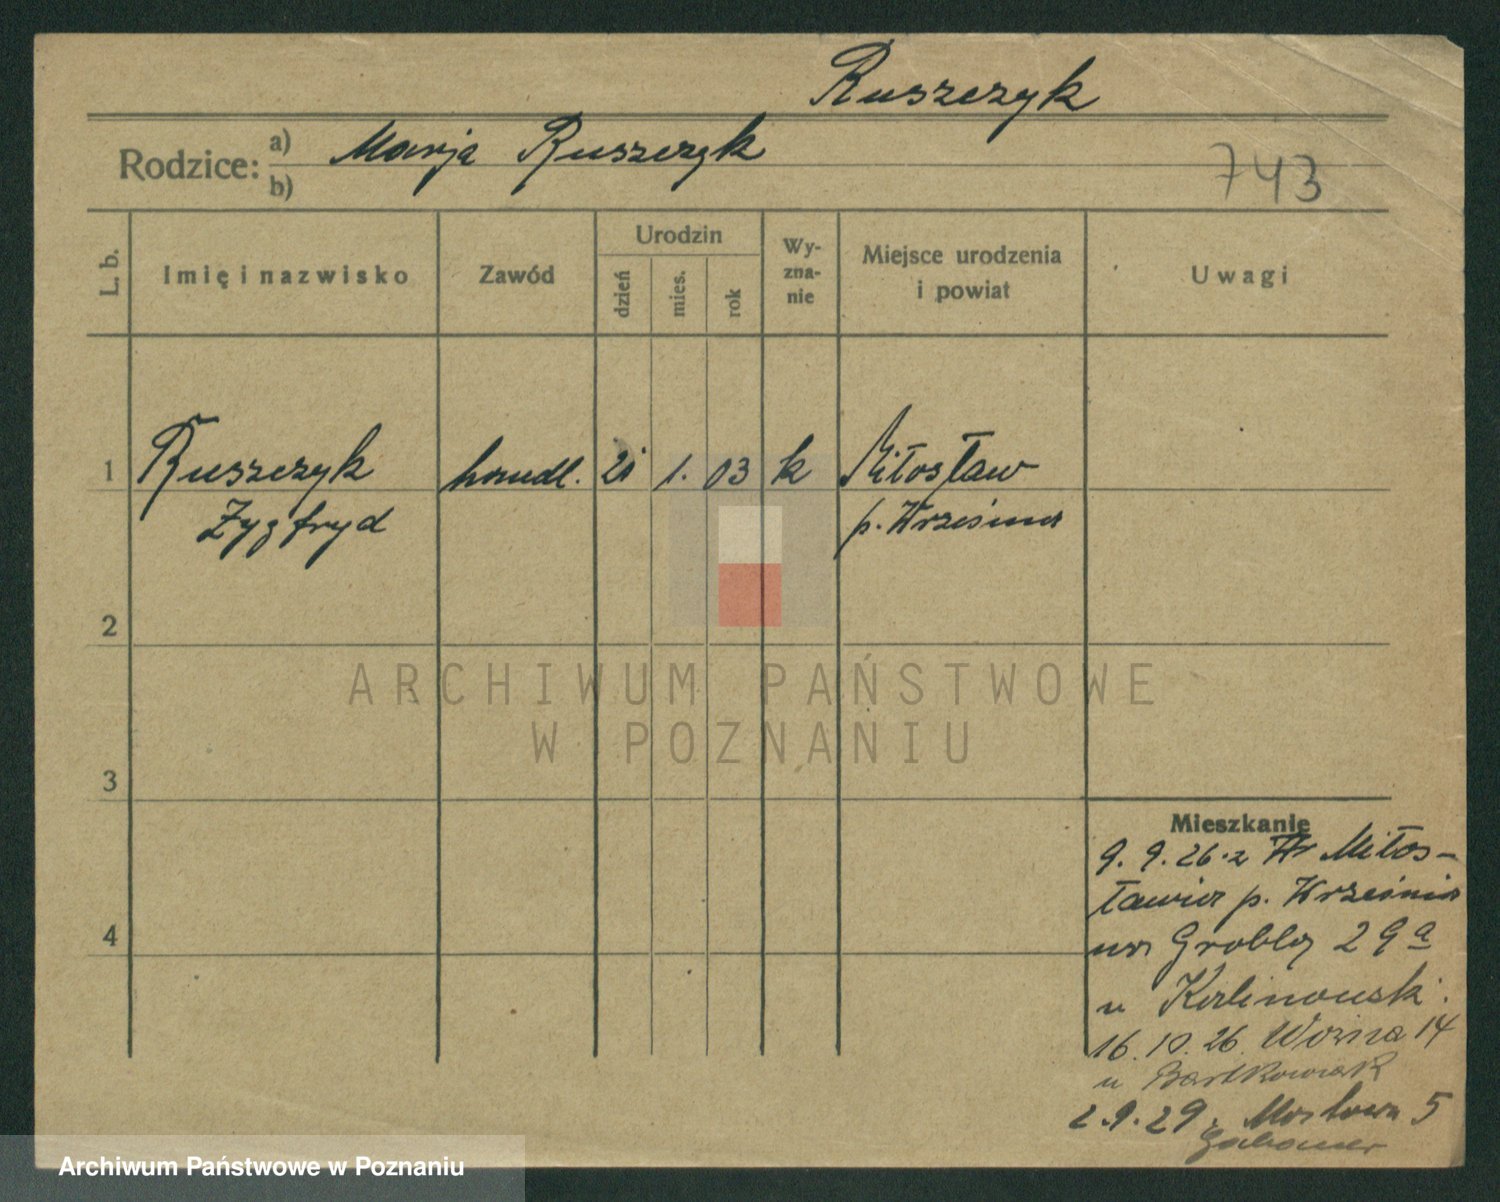 Ruszczyk
Rodzice: a) Marja Ruszczyk
b)
743
L. b.
Imię i nazwisko
Zawód
Urodzin
dzień
mies.
rok
Wy-
zna-
nie
Miejsce urodzenia
i powiat
Uwagi
1 Ruszczyk handl. 21 1. 03 k Miłosław
Zygfryd p. Września
2
3
4
ARCHIWUM PAŃSTWOWE
W POZNANIU
Mieszkanie
9. 9. 26. z Miłos-
ławia p. Września
na Grobla 29a
u Kalinowsk.
16. 10. 26. Woźna 14
u Bartkowiak
2.9.29. Mostowa 5
Archiwum Państwowe w Poznaniu